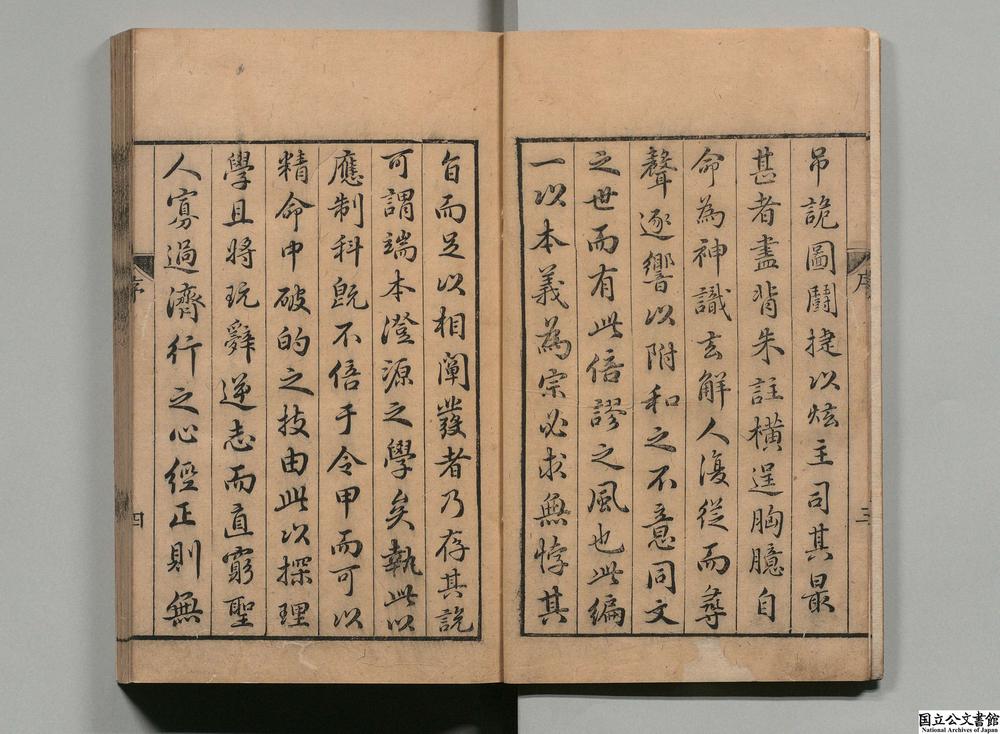 吊詭圖鬪捷以炫主司其最
甚者盡背朱註橫逞胸臆自
命為神識玄解人復從而尋
聲逐響以附和之不意同文
之世而有此倍謬之風也此編
一以本義為宗必求無悖其
序
三
旨而足以相闡發者乃存其說
可謂端本澄源之學矣執此以
應制科旣不倍乎令甲而可以
精命中破的之技由此以探理
學且將玩辭逆志而直窮聖
人寡過濟行之心經正則無
序
四
国立公文書館
National Archives of Japan